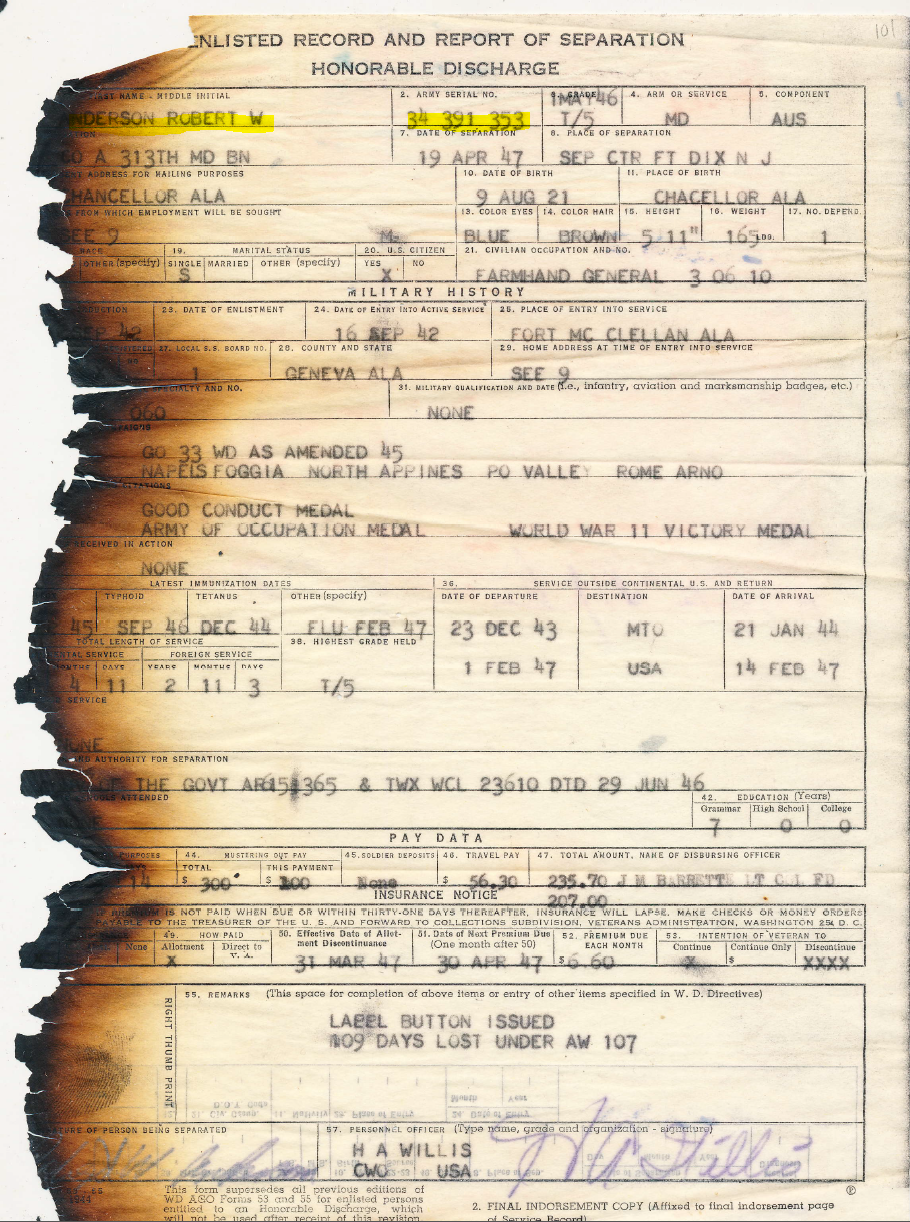 101
ENLISTED RECORD AND REPORT OF SEPARATION
HONORABLE DISCHARGE
NAME - MIDDLE INITIAL 2. ARMY SERIAL NO. 3. GRADE 4. ARM OR SERVICE 5. COMPONENT
1MAY46
NDERSON ROBERT W 34 391 353 T/5 MD AUS
7. DATE OF SEPARATION 8. PLACE OF SEPARATION
CO A 313TH MD BN 19 APR 47 SEP CTR FT DIX N J
ADDRESS FOR MAILING PURPOSES 10. DATE OF BIRTH 11. PLACE OF BIRTH
HANCELLOR ALA 9 AUG 21 CHACELLOR ALA
FROM WHICH EMPLOYMENT WILL BE SOUGHT 13. COLOR EYES 14. COLOR HAIR 15. HEIGHT 16. WEIGHT 17. NO. DEPEND.
SEE 9 BLUE BROWN 5 11" 165 LBS. 1
RACE 19. MARITAL STATUS 20. U.S. CITIZEN 21. CIVILIAN OCCUPATION AND NO.
OTHER (specify) SINGLE MARRIED OTHER (specify) YES NO
S X FARMHAND GENERAL 3 06 10
MILITARY HISTORY
DUCTION 23. DATE OF ENLISTMENT 24. DATE OF ENTRY INTO ACTIVE SERVICE 25. PLACE OF ENTRY INTO SERVICE
SEP 42 16 SEP 42 FORT MC CLELLAN ALA
27. LOCAL S.S. BOARD NO. 28. COUNTY AND STATE 29. HOME ADDRESS AT TIME OF ENTRY INTO SERVICE
1 GENEVA ALA SEE 9
CIALTY AND NO. 31. MILITARY QUALIFICATION AND DATE (i.e., infantry, aviation and marksmanship badges, etc.)
060 NONE
GO 33 WD AS AMENDED 45
NAPELS FOGGIA NORTH APPINES PO VALLEY ROME ARNO
CITATIONS
GOOD CONDUCT MEDAL
ARMY OF OCCUPATION MEDAL WORLD WAR 11 VICTORY MEDAL
RECEIVED IN ACTION
NONE
LATEST IMMUNIZATION DATES 36. SERVICE OUTSIDE CONTINENTAL U.S. AND RETURN
TYPHOID TETANUS OTHER (specify) DATE OF DEPARTURE DESTINATION DATE OF ARRIVAL
45 SEP 46 DEC 44 FLU FEB 47 23 DEC 43 MTO 21 JAN 44
TOTAL LENGTH OF SERVICE 38. HIGHEST GRADE HELD
NTAL SERVICE FOREIGN SERVICE
MONTHS DAYS YEARS MONTHS DAYS 1 FEB 47 USA 14 FEB 47
4 11 2 11 3 T/5
SERVICE
NONE
AUTHORITY FOR SEPARATION
OF THE GOVT AR615 365 & TWX WCL 23610 DTD 29 JUN 46
OLS ATTENDED 42. EDUCATION (Years)
Grammar High School College
7 0 0
PAY DATA
PURPOSES 44. MUSTERING OUT PAY 45. SOLDIER DEPOSITS 46. TRAVEL PAY 47. TOTAL AMOUNT, NAME OF DISBURSING OFFICER
TOTAL THIS PAYMENT
14 $ 300 $ 100 None $ 56.30 235.70 J M BARRETTE LT COL FD
207.00
INSURANCE NOTICE
IS NOT PAID WHEN DUE OR WITHIN THIRTY-ONE DAYS THEREAFTER, INSURANCE WILL LAPSE. MAKE CHECKS OR MONEY ORDERS
PAYABLE TO THE TREASURER OF THE U. S. AND FORWARD TO COLLECTIONS SUBDIVISION, VETERANS ADMINISTRATION, WASHINGTON 25, D. C.
49. HOW PAID 50. Effective Date of Allotment Discontinuance 51. Date of Next Premium Due (One month after 50) 52. PREMIUM DUE EACH MONTH 53. INTENTION OF VETERAN TO
None Allotment Direct to V. A. Continue Continue Only Discontinue
X 31 MAR 47 30 APR 47 $6.60 X $ XXXX
RIGHT THUMB PRINT
55. REMARKS (This space for completion of above items or entry of other items specified in W. D. Directives)
LAPEL BUTTON ISSUED
109 DAYS LOST UNDER AW 107
TURE OF PERSON BEING SEPARATED 57. PERSONNEL OFFICER (Type name, grade and organization - signature)
H A WILLIS
CWO USA
H A Willis
This form supersedes all previous editions of
WD AGO Forms 53 and 55 for enlisted persons
entitled to an Honorable Discharge, which
will not be used after receipt of this revision
2. FINAL INDORSEMENT COPY (Affixed to final indorsement page
of Service Record)